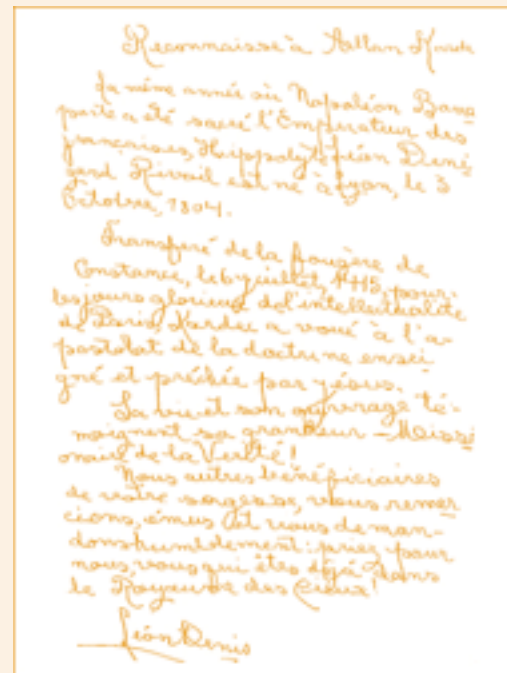 Reconnaisse à Allan Karde
la même année où Napoléon Bona
parte a été sacré l'Empereteur des
françaises, Hippolyte Léon Deni
zard Rivail est né à Lyon, le 3
Octobre, 1804.
Transferé de la fougère de
Constance, le 6 juillet, 1415, pour
les jours glorieux de l'intellectualité
de Paris, Kardec a voué à l'a-
postolat de la doctrine ensei
gné et prêchée par Jésus.
La vie et son ouvrage té-
moignent sa grandeur – Missi
onaire de la Verité!
Nous autres bénéficiaires
de votre sagesse, vous remer
cions, émus et vous deman-
dons humblement: priez pour
nous, vous qui êtes déjà dans
le Royaume des Cieux!
Léon Denis